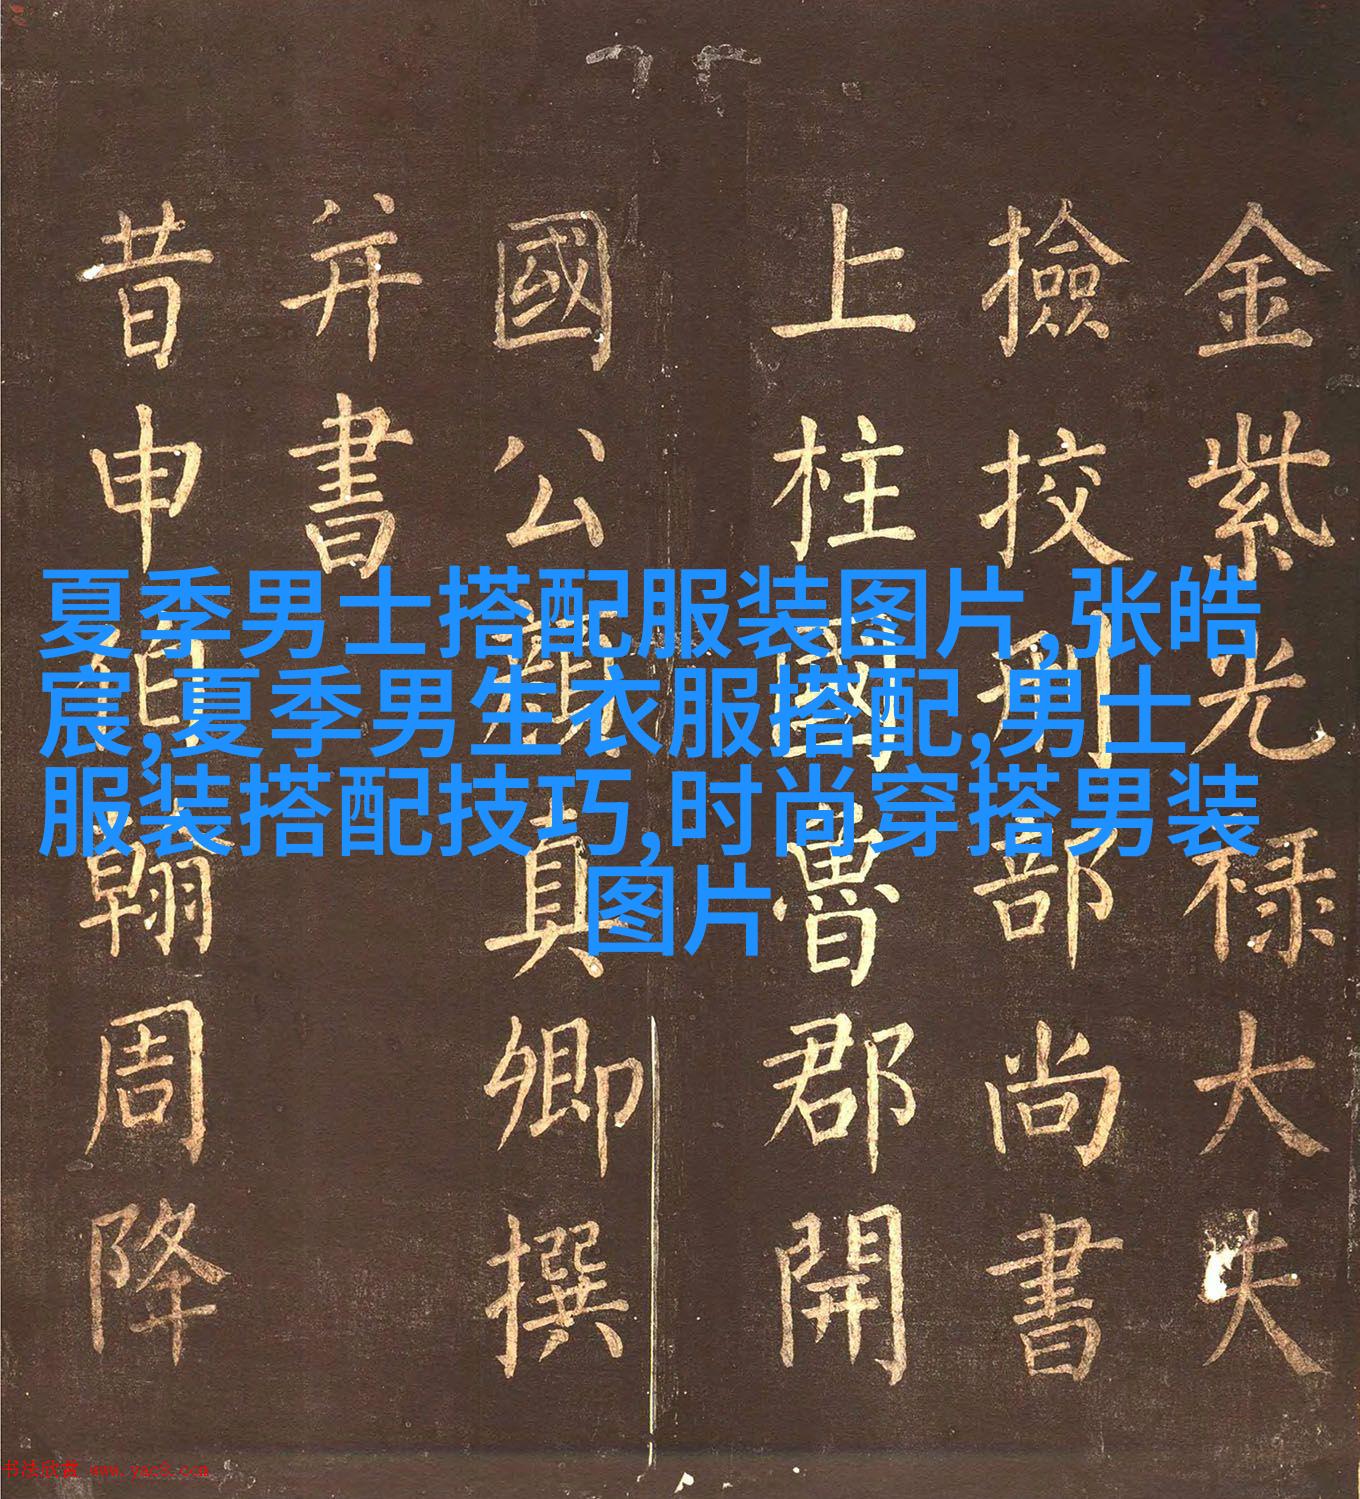 金紫光禄大夫
撿挍刑部尚書
上柱國魯郡開
國公顔真卿撰
并書
昔申伯翰周降
夏季男士搭配服装图片,张皓
宸,夏季男生衣服搭配,男士
服装搭配技巧,时尚穿搭男装
图片
书法欣赏 www.yac8.com